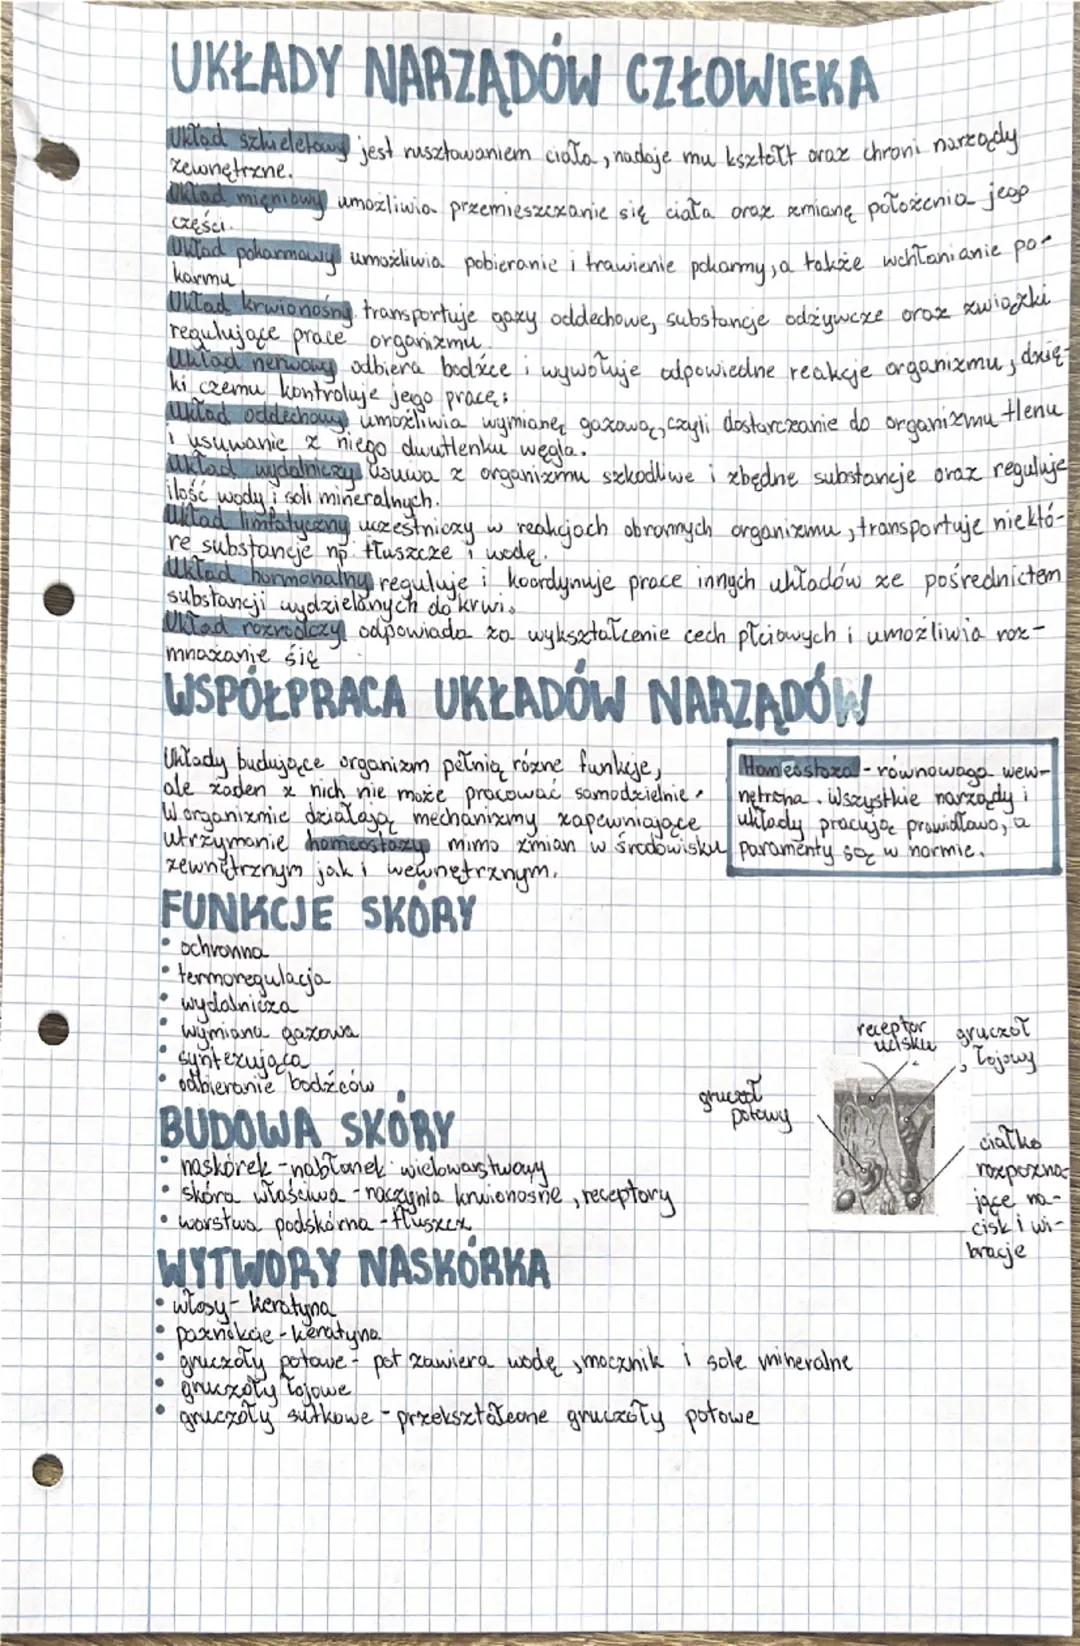 UKŁADY NARZĄDÓW CZŁOWIEKA
Układ szkieletowy jest rusztowaniem ciała, nadaje mu kształt oraz chroni narządy
zewnętrzne.
Układ mięniowy umożliwia przemieszczanie się ciała oraz zmianę położenia jego
części.
Układ pokarmowy umożliwia pobieranie i trawienie pokarmy, a także wchłanianie po-
karmu
Układ krwionośny transportuje gazy oddechowe, substancje odżywcze oraz związki
regulujące prace organizmu.
Układ nerwowy odbiera bodźce i wywołuje odpowiedne reakcje organizmu, dzię-
ki czemu kontroluje jego pracę;
Układ oddechowy umożliwia wymianę gazową, czyli dostarczanie do organizmu tlenu
i usuwanie z niego dwutlenku węgla.
Układ wydalniczy usuwa z organizmu szkodliwe i zbędne substancje oraz reguluje
ilość wody i soli mineralnych.
Układ limfatyczny uczestniczy w reakcjach obronnych organizmu, transportuje niektó-
re substancje np. tłuszcze i wodę.
Układ hormonalny reguluje i koordynuje prace innych układów ze pośrednictem
substancji wydzielanych do krwi.
Układ rozrodczy odpowiada za wykształcenie cech płciowych i umożliwia roz-
mnażanie się
WSPÓŁPRACA UKŁADÓW NARZĄDÓW
Układy budujące organizm pełnią różne funkcje,
ale żaden z nich nie może pracować samodzielnie.
W organizmie działają mechanizmy zapewniające
utrzymanie homeostazy mimo zmian w środowisku
zewnętrznym jak i wewnętrznym.
Homeostaza - równowaga wew-
nętrzna. Wszystkie narządy i
układy pracują prawidłowo, a
paramenty są w normie.
FUNKCJE SKÓRY
• ochronna
• termoregulacja
• wydalnicza
• wymiana gazowa
• syntezująca
• odbieranie bodźców
receptor
ucisku
gruczoł
łojowy
gruczoł
potowy
ciałko
rozpozna-
jące na-
cisk i wi-
bracje
BUDOWA SKÓRY
• naskórek - nabłonek wielowarstwowy
• skóra właściwa - naczynia krwionośne, receptory
• warstwa podskórna - tłuszcz
WYTWORY NASKÓRKA
• włosy - keratyna
• paznokcie - keratyna
• gruczoły potowe - pot zawiera wodę, mocznik i sole mineralne
• gruczoły łojowe
• gruczoły sutkowe - przekształcone gruczoły potowe